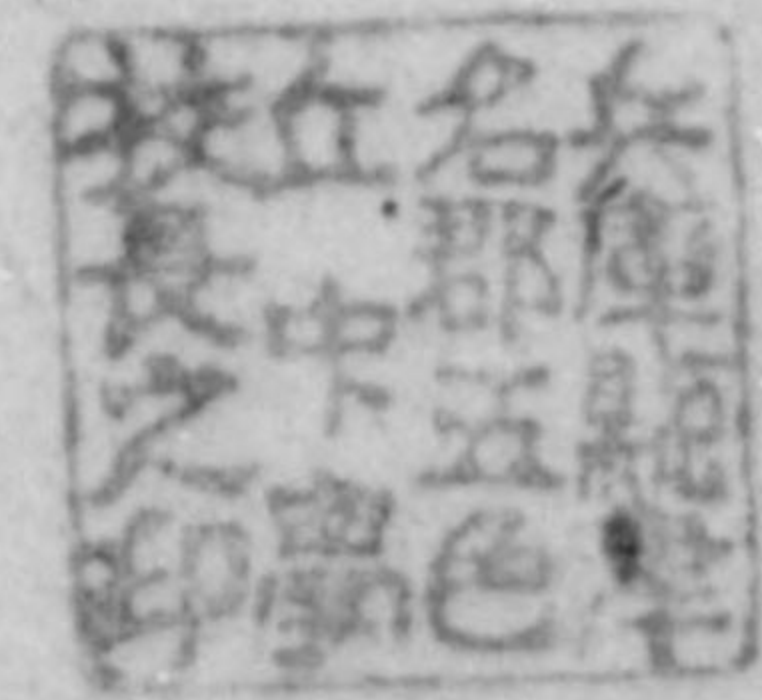 兵庫縣津
名郡五色
丘中學
校長之印